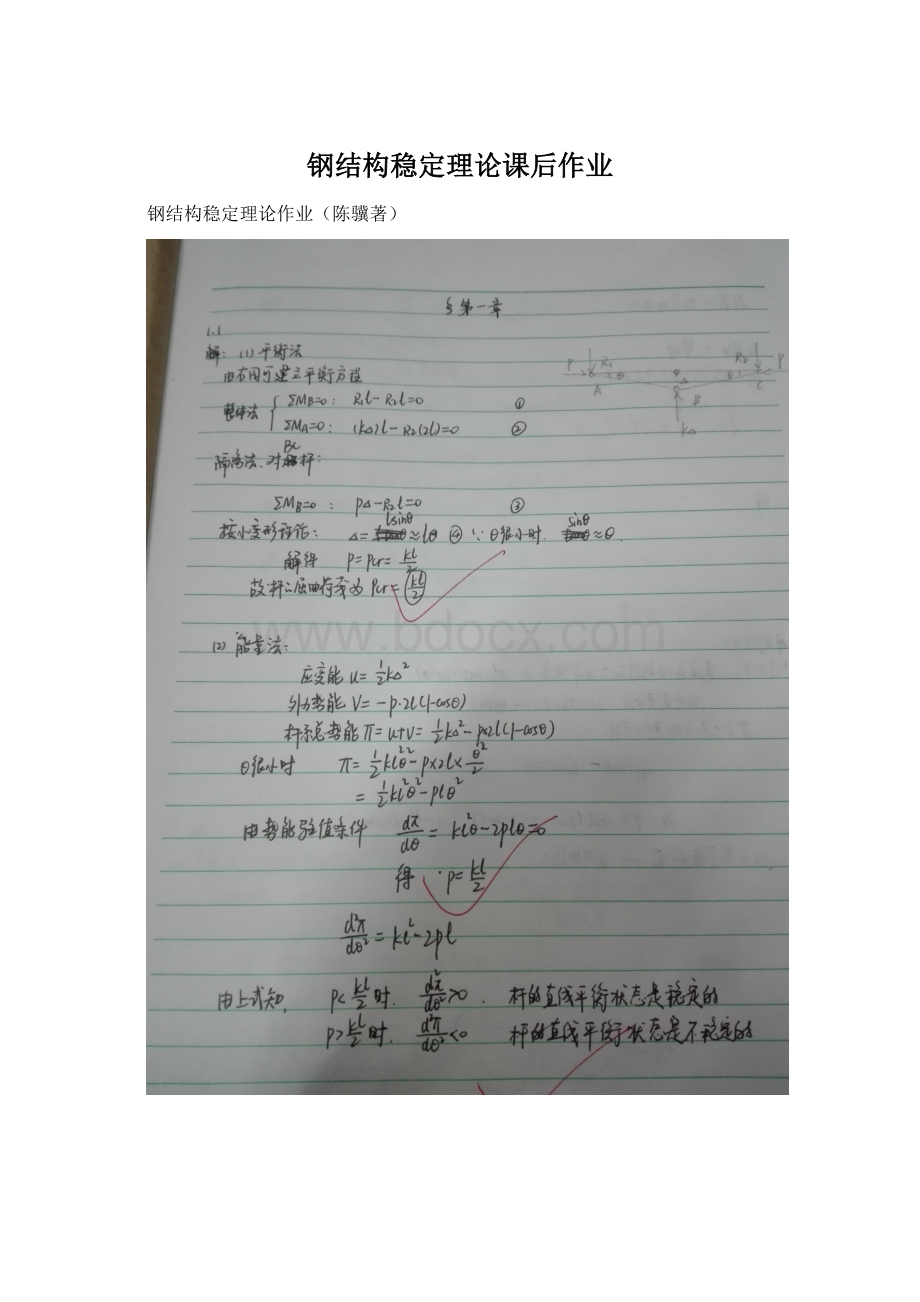 钢结构稳定理论课后作业
钢结构稳定理论作业（陈骥著）
§第一章
1.1
解：(1)平衡法
由右图可建立平衡方程
整体法 { ΣMB=0： R1l-R2l=0 ①
ΣMA=0： (kΔ)l-R2(2l)=0 ②
隔离法.对BC杆：
ΣMB=0： PΔ-R2l=0 ③
按小变形理论： Δ=lsinθ≈lθ ④ ∵θ很小时. sinθ≈θ.
解得 P=Pcr=kl/2
故杆的屈曲荷荣为 Pcr=kl/2
P R1 θ A θ Δ B kΔ θ R2 P C
www.bdocx.com
(2) 能量法：
应变能 u=½kΔ²
外力势能 V=-P·2l(1-cosθ)
杆系总势能 π=u+v=½kΔ²-P×2l(1-cosθ)
θ很小时 π=½kl²θ²-P×2l×θ²/2
=½kl²θ²-Plθ²
由势能驻值条件 dπ/dθ=kl²θ-2Plθ=0
得 P=kl/2
d²π/dθ²=kl²-2Pl
由上式知， P<kl/2时. d²π/dθ²>0. 杆的直线平衡状态是稳定的
P>kl/2时. d²π/dθ²<0 杆的直线平衡状态是不稳定的